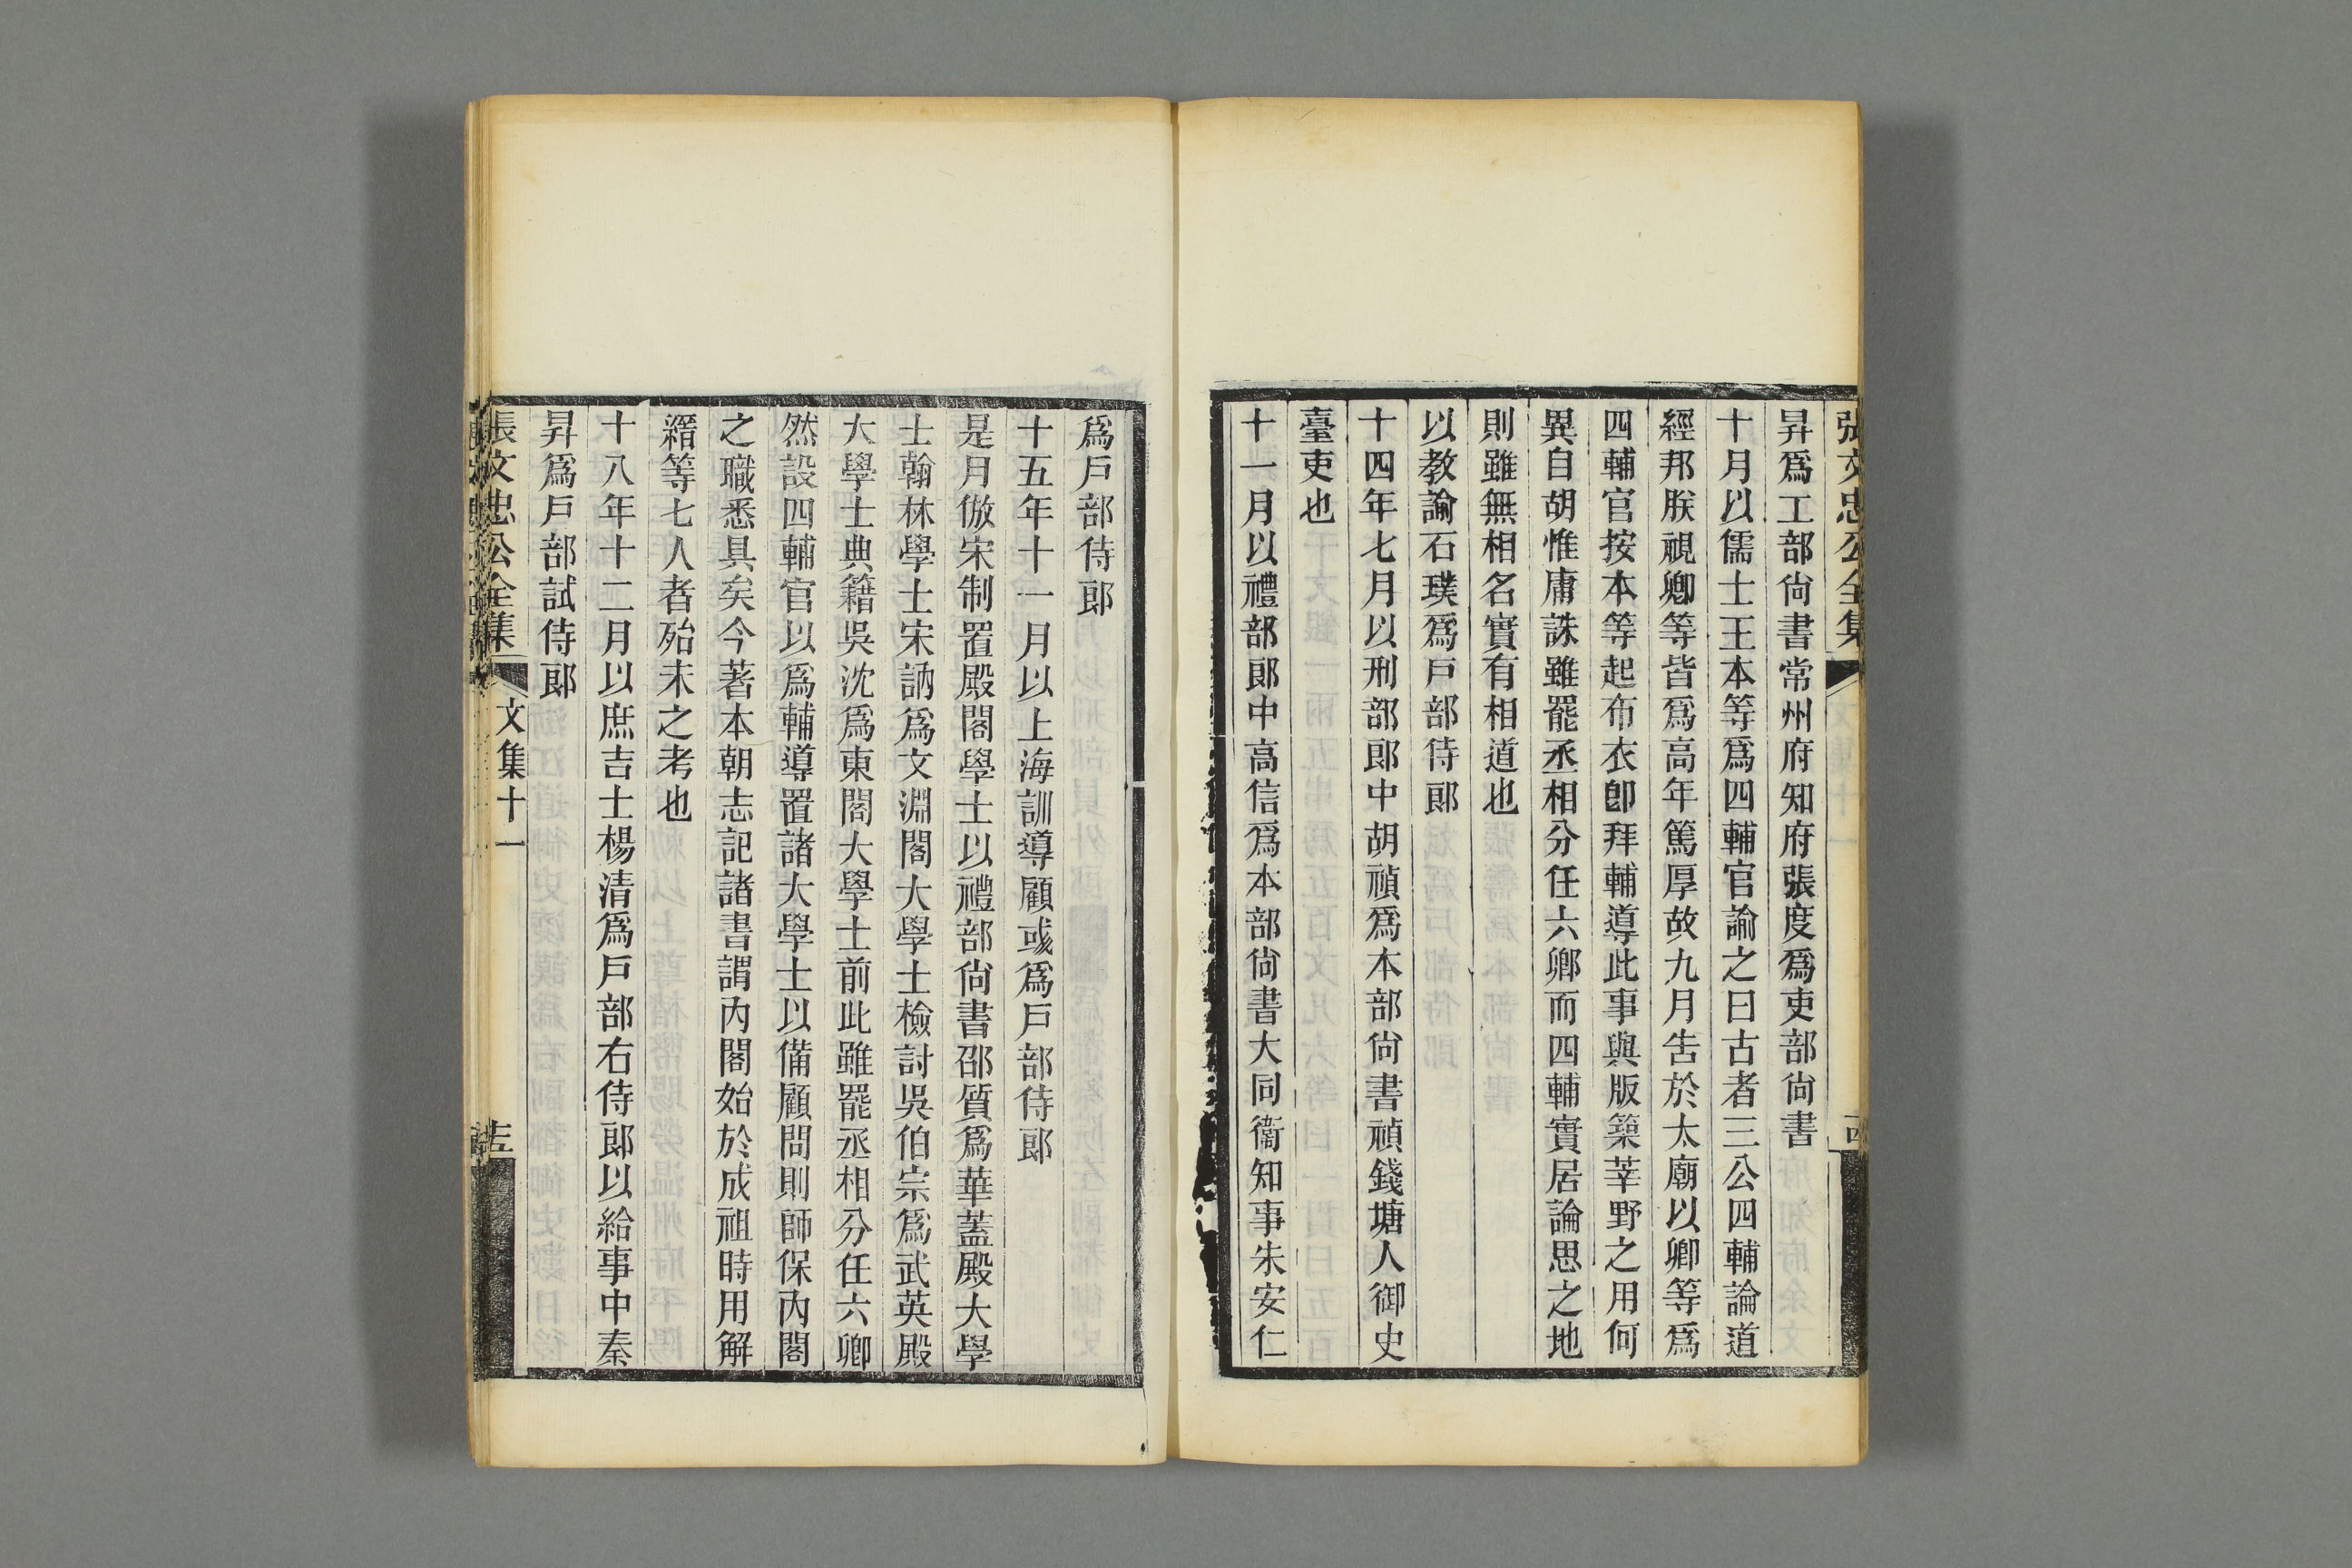 張文忠公全集
昇爲工部尙書常州府知府張度爲吏部尙書
十月以儒士王本等爲四輔官諭之曰古者三公四輔論道
經邦朕視卿等皆爲高年篤厚故九月告於太廟以卿等爲
四輔官按本等起布衣卽拜輔導此事與版築莘野之用何
異自胡惟庸誅雖罷丞相分任六卿而四輔實居論思之地
則雖無相名實有相道也
以教諭石璞爲戶部侍郎
十四年七月以刑部郎中胡禎爲本部尙書禎錢塘人御史
臺吏也
十一月以禮部郎中高信爲本部尙書大同衞知事朱安仁
爲戶部侍郎
十五年十一月以上海訓導顧彧爲戶部侍郎
是月倣宋制置殿閣學士以禮部尙書邵質爲華蓋殿大學
士翰林學士宋訥爲文淵閣大學士檢討吳伯宗爲武英殿
大學士典籍吳沈爲東閣大學士前此雖罷丞相分任六卿
然設四輔官以爲輔導置諸大學士以備顧問則師保內閣
之職悉具矣今著本朝志記諸書謂內閣始於成祖時用解
縉等七人者殆未之考也
十八年十二月以庶吉士楊清爲戶部右侍郎以給事中秦
昇爲戶部試侍郎
張文忠公全集
文集十一